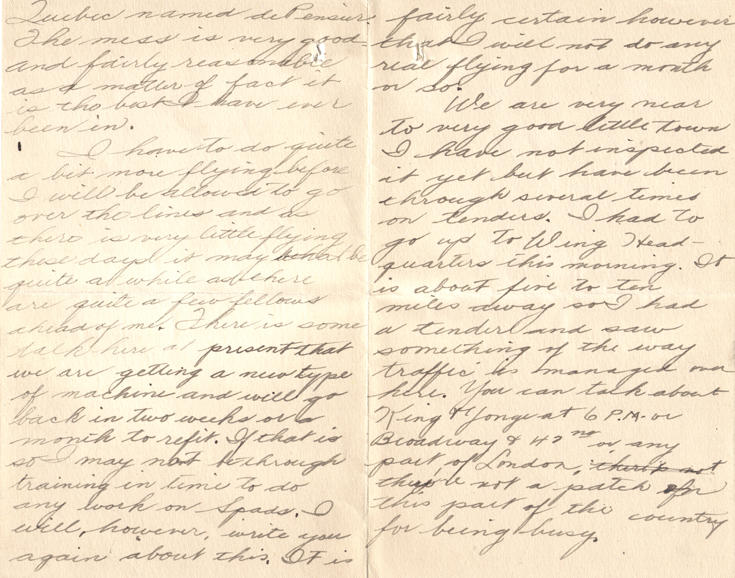 Quebec named de Pensier.
The mess is very good
and fairly reasonable
as a matter of fact it
is the best I have ever
been in.
I have to do quite
a bit more flying before
I will be allowed to go
over the lines and as
there is very little flying
these days it may be
quite a while as there
are quite a few fellows
ahead of me. There is some
talk here at present that
we are getting a new type
of machine and will go
back in two weeks or a
month to refit. If that is
so I may not be through
training in time to do
any work on Spads. I
will, however, write you
again about this. It is
fairly certain however
that I will not do any
real flying for a month
or so.
We are very near
to very good little town
I have not inspected
it yet but have been
through several times
on tenders. I had to
go up to Wing Head-
quarters this morning. It
is about five to ten
miles away so I had
a tender and saw
something of the way
traffic is managed over
here. You can talk about
King & Yonge at 6 P.M. or
Broadway & 42nd or any
part of London, there's not
they're not a patch on
this part of the country
for being busy.